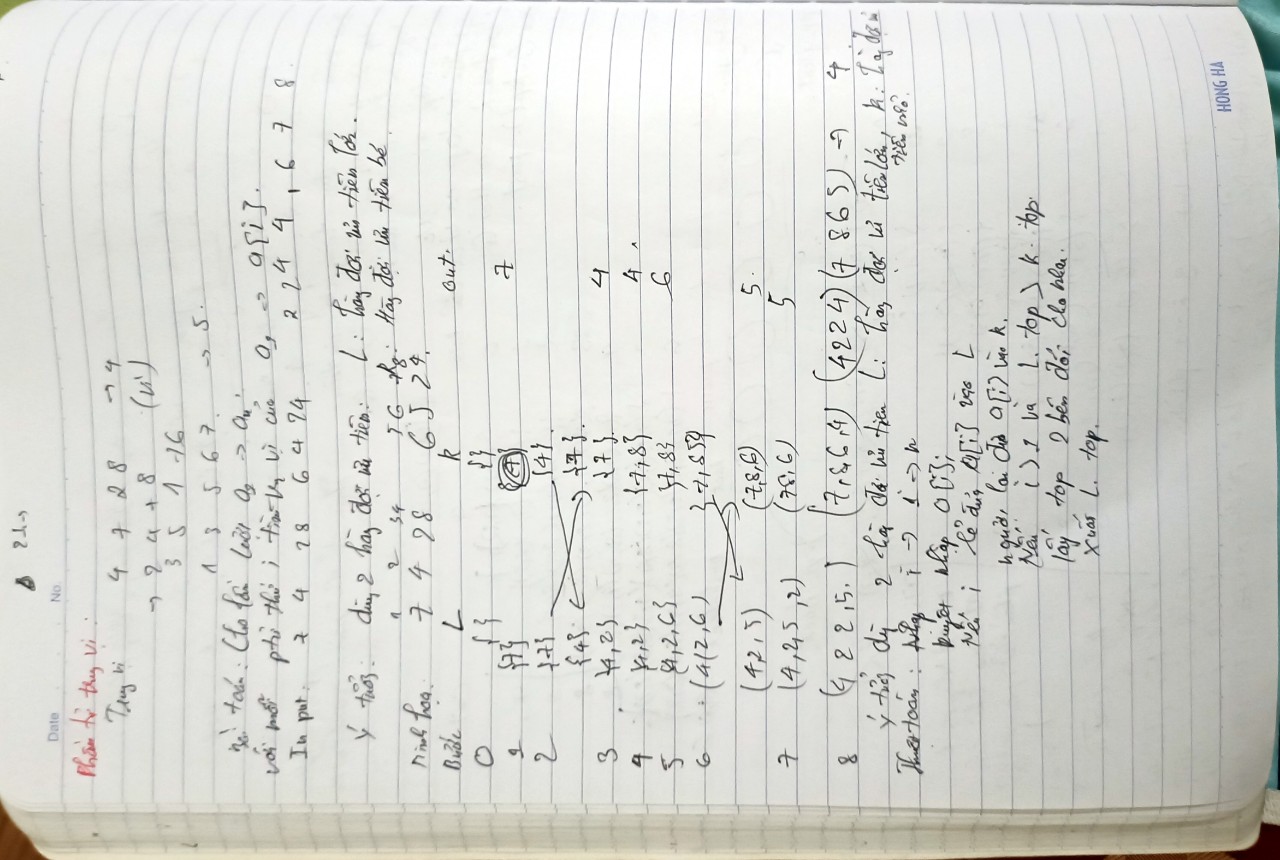 2h→
Date No.
Phần tử trung vị:
Trung vị 4 7 2 8 → 4
→ 2 4 7 8 (vì)
3 5 1 7 6
1 3 5 6 7. → 5.
Bài toán: Cho lần lượt a₂ → aₙ.
với mỗi ptử thứ i tìm trung vị của a₁ → a[i].
In put: 7 4 2 8 6 4 24 2 2 4 4, 6 7 8
Ý tưởng: dùng 2 hàng đợi ưu tiên: L: hàng đợi ưu tiên lớn.
1 2 3 4 5 6 7 8: Hàng đợi ưu tiên bé
Minh họa: 7 4 2 8 6 5 2 4.
Bước L k out.
0 { } { }
1 {7} 7
2 {7} {4}.
{4} {7}.
3 {4,2} {7}. 4
4 {4,2} {7,8} 4
5 {4,2,6} {7,8} 6
6 (4,2,6) {7,8,5}
(4,2,5) (7,8,6) 5.
7 (4,2,5,2) (7,8,6) 5
8 (4 2 2,5.) (7,8,6,4) (4 2 2 4) (7 8 6 5) → 4.
Ý tưởng dùng 2 hàng đợi ưu tiên L: hàng đợi ưu tiên lớn, k: hàng đợi ưu
tiên nhỏ.
Thuật toán: Nhập i → 1 → n
nhập a[i];
Nếu i lẻ đưa a[i] vào L
ngược lại đưa a[i] vào k.
Nếu i > 1 và L. top > k. top.
lấy top 2 bên đổi cho nhau.
Xuất L. top.
HONG HA